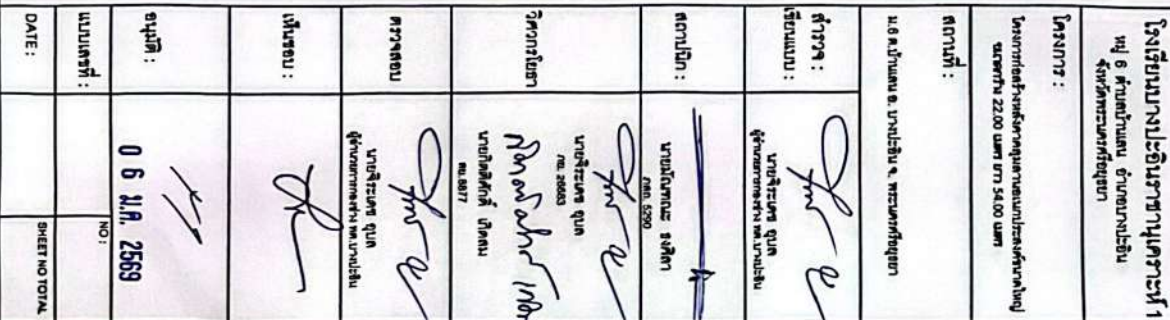 โรงเรียนบางปะอินราชานุเคราะห์ 1
หมู่ 6 ตำบลบ้านเลน อำเภอบางปะอิน
จังหวัดพระนครศรีอยุธยา
โครงการ :
โครงการก่อสร้างหลังคาคลุมลานอเนกประสงค์ขนาดใหญ่
ขนาดกว้าง 22.00 เมตร ยาว 54.00 เมตร
สถานที่ :
ม.6 ต.บ้านเลน อ. บางปะอิน จ. พระนครศรีอยุธยา
สำรวจ :
เขียนแบบ :
นายจิระเดช อุบล
ผู้อำนวยการกองช่าง ทต.บางปะอิน
สถาปนิก :
ภสถ. 5290
นายจิระเดช อุบล
กย. 26683
วิศวกรโยธา
นายกิตติศักดิ์ เกิดสม
ตรวจสอบ
นายจิระเดช อุบล
ผู้อำนวยการกองช่าง ทต.บางปะอิน
เห็นชอบ :
อนุมัติ :
0 6 ม.ค. 2569
แบบเลขที่ :
NO :
DATE :
SHEET NO TOTAL